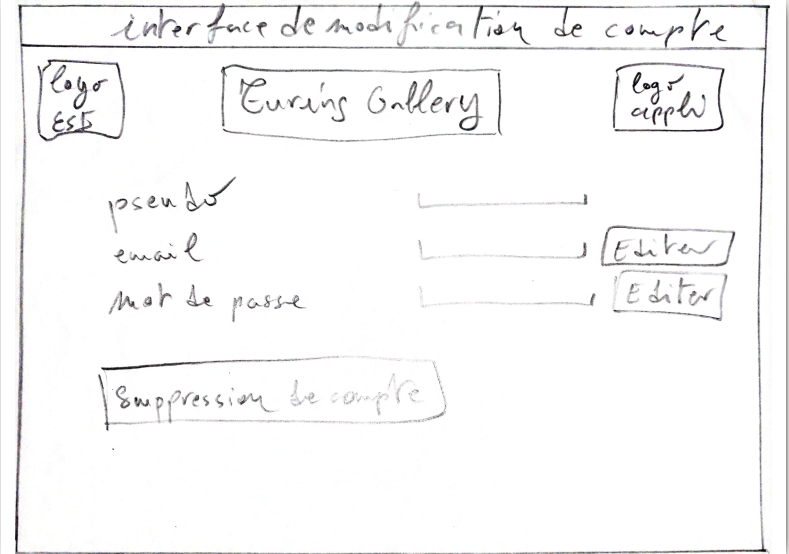 interface de modification de compte
logo
ESI
Turing Gallery
logo
appli
pseudo
email
Editer
mot de passe
Editer
Suppression de compte